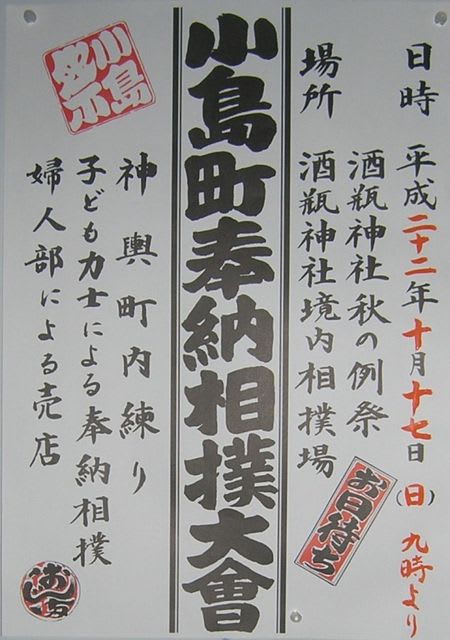 日時 平成二十二年十月十七日(日) 九時より
酒瓶神社秋の例祭
場所 酒瓶神社境内相撲場
お日待ち
小島町奉納相撲大會
小島
神輿町内練り
子ども力士による奉納相撲
婦人部による売店